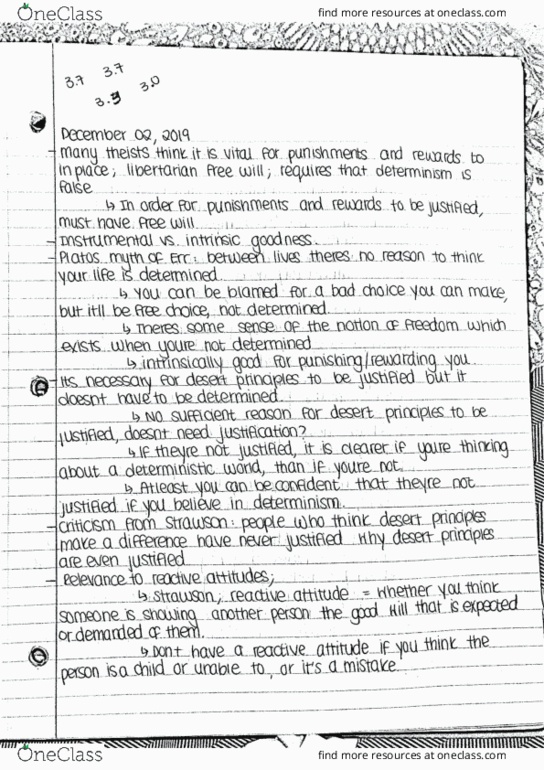 OneClass
find more resources at oneclass.com
3.7 3.7
3.9 3.0
December 02, 2019
- Many theists think it is vital for punishments and rewards to
in place; libertarian free will; requires that determinism is
false
↳ In order for punishments and rewards to be justified,
must have free will
- Instrumental vs. intrinsic goodness.
- Platos myth of Err: between lives theres no reason to think
your life is determined
↳ You can be blamed for a bad choice you can make,
but itll be free choice, not determined
↳ Theres some sense of the notion of freedom which
exists when youre not determined
↳ intrinsically good for punishing/rewarding you
- Its necessary for desert principles to be justified but it
doesnt have to be determined
↳ NO sufficient reason for desert principles to be
justified, doesnt need justification?
↳ If theyre not justified, it is clearer if youre thinking
about a deterministic world, than if youre not.
↳ Atleast you can be confident that theyre not
justified if you believe in determinism.
- Criticism from Strawson: people who think desert principles
make a difference have never justified why desert principles
are even justified
- Relevance to reactive attitudes;
↳ Strawson; reactive attitude = whether you think
someone is showing another person the good will that is expected
or demanded of them.
↳ Dont have a reactive attitude if you think the
person is a child or unable to, or it's a mistake.
7
OneClass
find more resources at oneclass.com